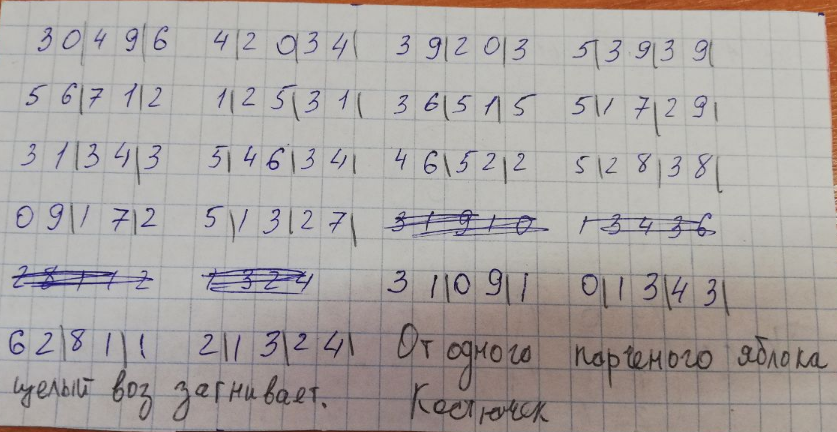 30|49|6 4|2 0|3 4| 3 9|2 0|3 5|3 9|3 9|
5 6|7 1|2 1|2 5|3 1| 3 6|5 1|5 5|1 7|2 9|
3 1|3 4|3 5|4 6|3 4| 4 6|5 2|2 5|2 8|3 8|
0 9|1 7|2 5|1 3|2 7| 3 1 9 1 0 1 3 4 3 6
3 1|0 9|1 0|1 3|4 3|
6 2|8 1|1 2|1 3|2 4| От одного парченого яблока
целый воз загнивает. Костючек